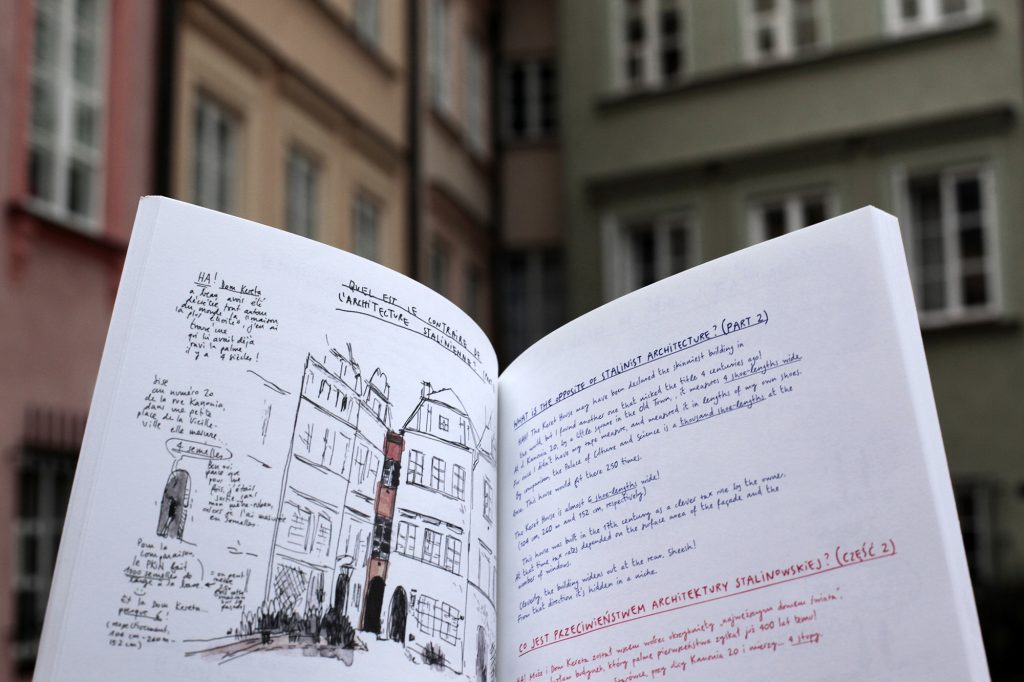 HA! Dom Kereta
a beau avoir été
déclarée tout autour
du monde la maison
la plus étroite, j'en ai
trouvé une
qui lui avait déjà
ravi la palme
il y a 4 siècles!
Sise
au numéro 20
de la rue Kanonia,
dans une petite
place de la Vieille
ville elle mesure...
4 semelles
Ben oui
parce que
pour une
fois, j'étais
sortie sans
mon mètre-ruban,
alors je l'ai mesurée
en semelles
Pour la
comparaison,
le PKiN fait
semelles de
Et la Dom Kereta
presque 6
(respectivement,
104 cm - 260 m -
152 cm)
QUEL EST LE CONTRAIRE DE
L'ARCHITECTURE STALINIENNE?
WHAT IS THE OPPOSITE OF STALINIST ARCHITECTURE? (PART 2)
HAH! The Keret House may have been declared the skinniest building in
the world, but I found another one that nicked the title 4 centuries ago!
At ul Kanonia 20, by a little square in the Old Town, it measures 4 shoe-lengths wide.
For once I didn't have my tape measure, and measured it in lengths of my own shoes.
By comparison, the Palace of Culture and Science is a thousand shoe-lengths at the
base. This house would fit there 250 times.
The Keret House is almost 6 shoe-lengths wide!
(104 cm, 260 m and 152 cm, respectively)
This house was built in the 17th century as a clever tax ruse by the owner.
At that time tax rates depended on the surface area of the façade and the
number of windows.
Cleverly, the building widens out at the rear. Sheesh!
From that direction it's hidden in a niche.
CO JEST PRZECIWIEŃSTWEM ARCHITEKTURY STALINOWSKIEJ? (CZĘŚĆ 2)
HA! Może i Dom Kereta został wszem wobec okrzyknięty „najwęższym domem świata”,
budynek, który palmę pierwszeństwa zyskał już 400 lat temu!
przy ulicy Kanonia 20 i mierzy... 4 stopy